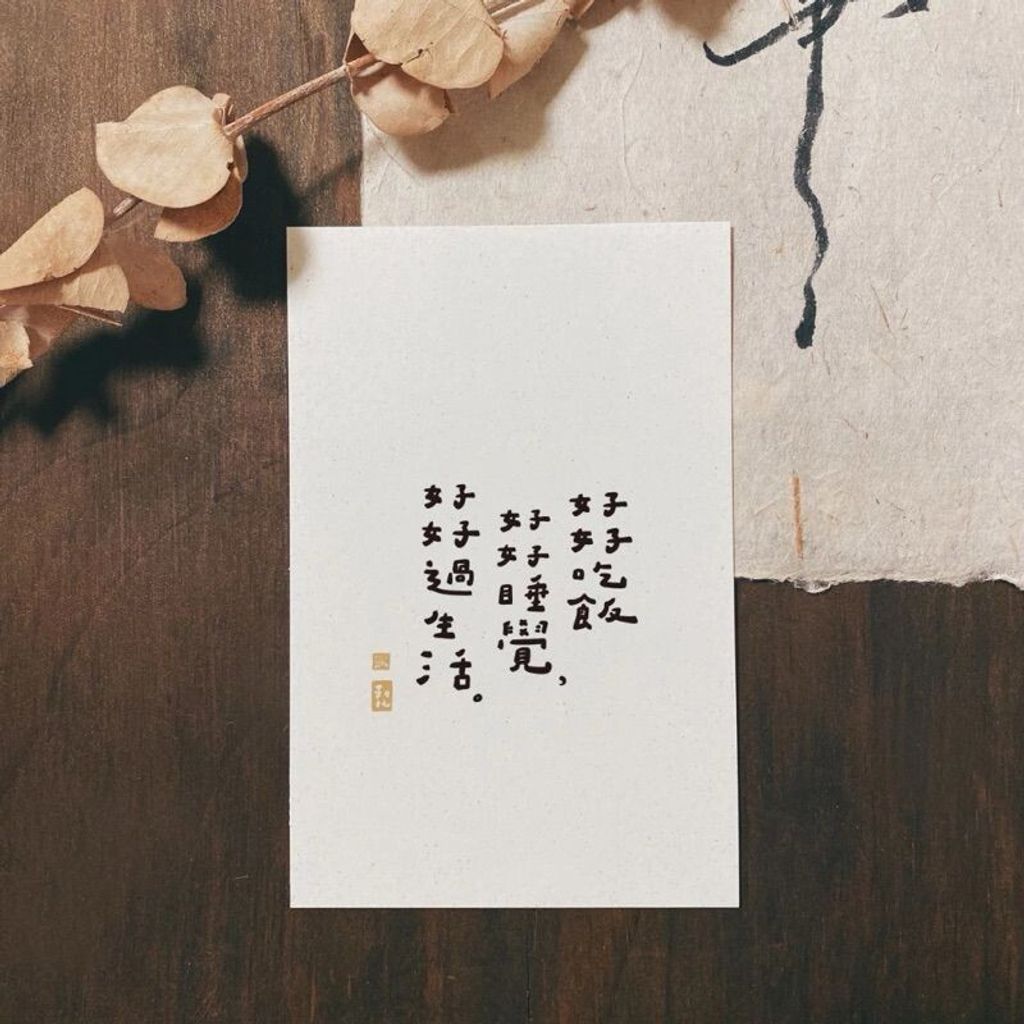 好好吃飯
好好睡覺，
好好過生活。